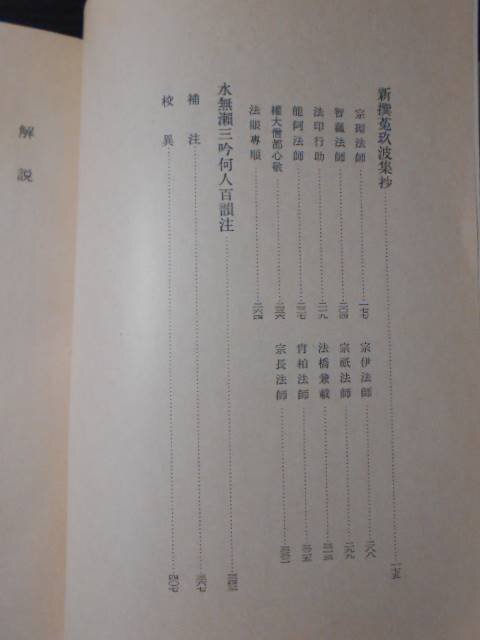 新撰菟玖波集抄……一七五
宗砌法師……一七七
智蘊法師……二〇四
法印行助……二一九
能阿法師……二二七
權大僧都心敬……二三六
法眼專順……二六四
宗伊法師……二八八
宗祇法師……二九九
法橋兼載
肖柏法師
宗長法師
水無瀬三吟何人百韻注
補注
校異……四〇七
解説